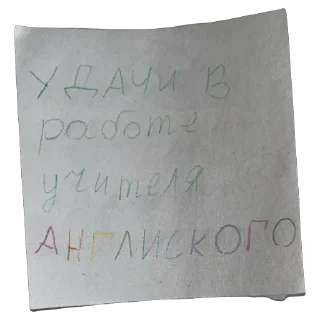 УДАЧИ В
работе
учителя
АНГЛИСКОГО